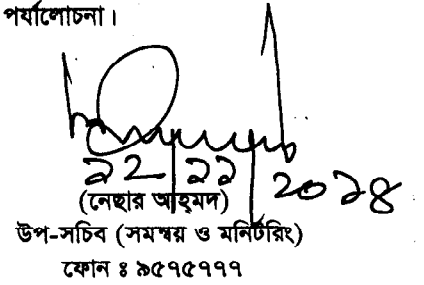 পর্যালোচনা।
১২/১১/২০১৪
(নেছার আহ্‌মদ)
উপ-সচিব (সমন্বয় ও মনিটরিং)
ফোন ঃ ৯৫৭৫৭৭৭